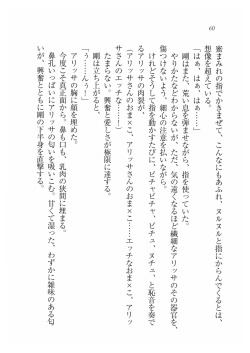 60
蜜まみれの指でかきまぜて、こんなにもあふれ、ヌルヌルと指にからんでくるとは、
想像を超えている。
「はぁはぁ、はぁはぁ……」
剛はまた、荒い息を弾ませながら、指を使っていた。
やりかたなどわからないが、ただ、気の遠くなるほど繊細なアリッサのその器官を、
傷つけないよう、細心の注意を払いながら。
けれどそうして指を動かすたびに、ピチャピチャ、ピチュ、ヌチュ、と恥音を奏で
るアリッサの肉裂が、
（アリッサさんのおま×こ、アリッサさんのおま×こ……エッチなおま×こ、アリッ
サさんのエッチな……）
たまらない。興奮と愛しさが極限に達する。
剛は立ち上がると、
「う……んうっ！」
アリッサの胸に顔を埋めた。
今度こそ真正面から、鼻も口も、乳肉の狭間に埋まる。
鼻孔いっぱいにアリッサの匂いを吸いこむ。甘くて湿った、わずかに雑味のある匂
いが、興奮とともに剛の下半身を直撃する。